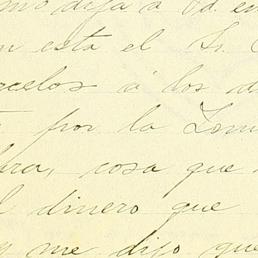 mo dija a Vd. en
n esta el Sr. C
rcelos á los d
por la Tom
bra, cosa que
l dinero que
y me dijo que